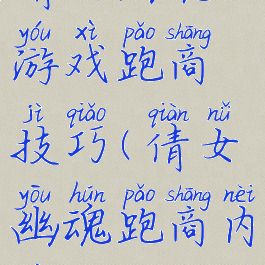 yóu xì pǎo shāng
游戏跑商
jì qiǎo qiàn nǚ
技巧(倩女
yōu hún pǎo shāng nèi
幽魂跑商内